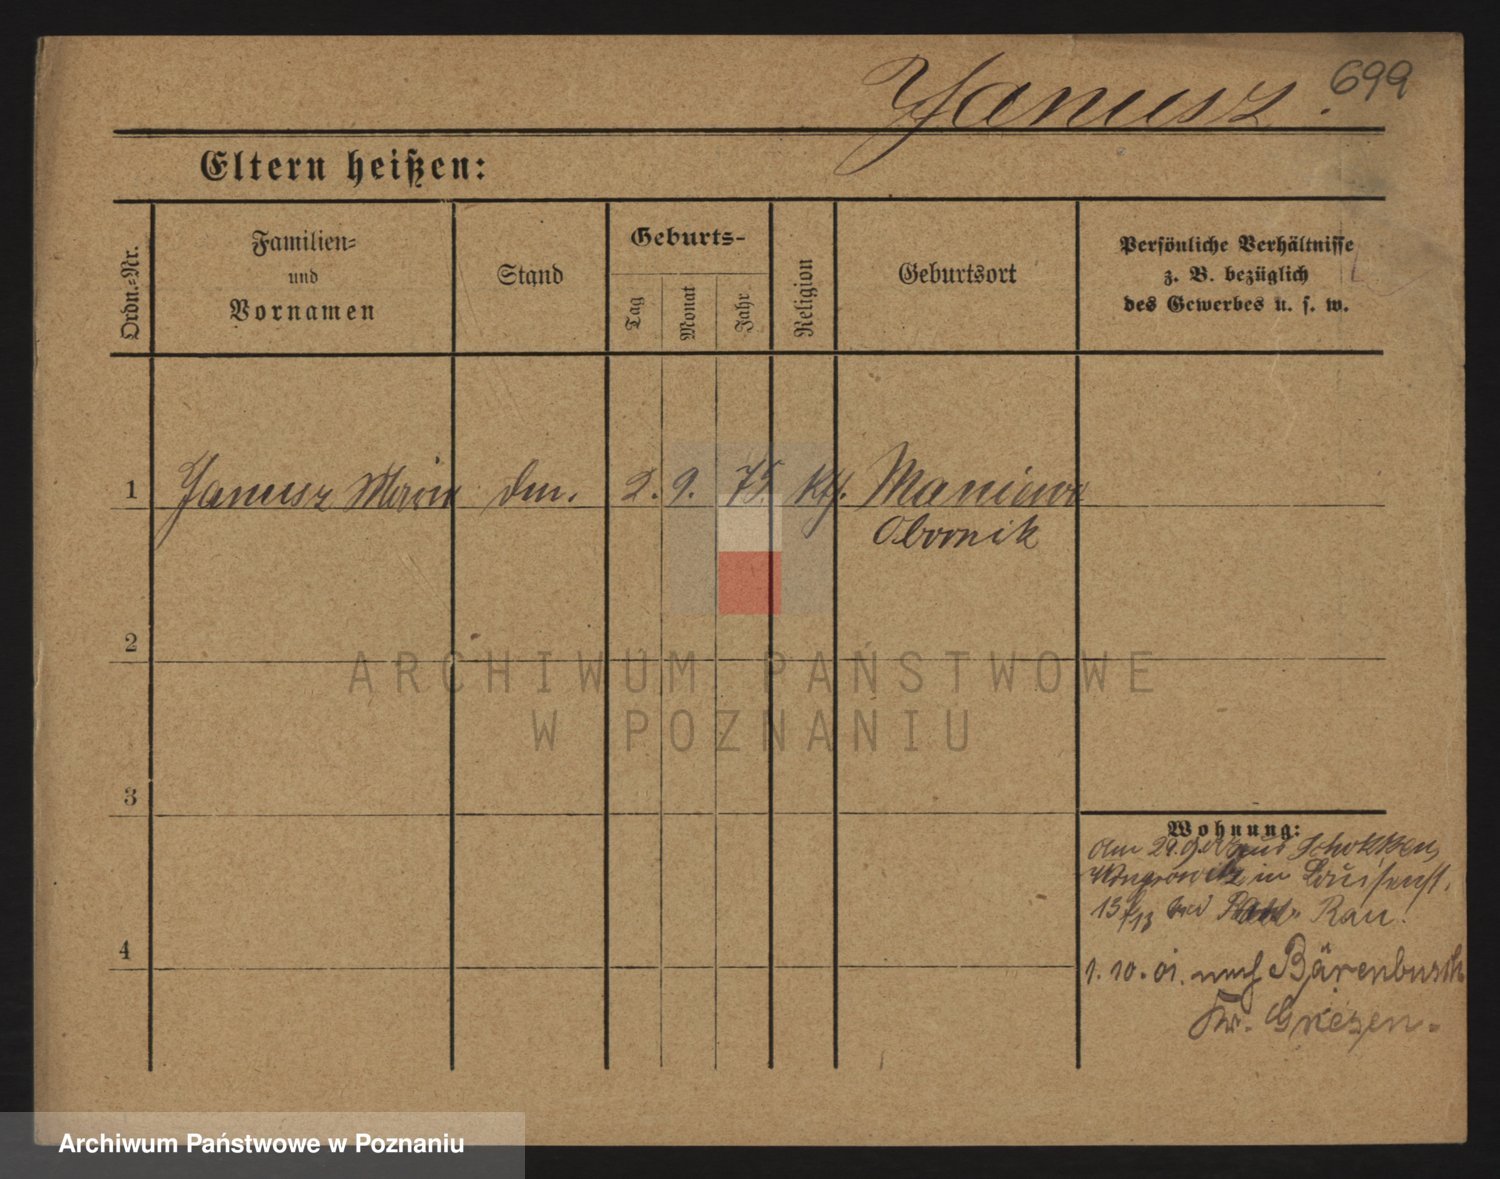 Janusz. 699
Eltern heißen:
Ordn.-Nr.
Familien-
und
Vornamen
Stand
Geburts-
Tag
Monat
Jahr
Religion
Geburtsort
Persönliche Verhältnisse
z. B. bezüglich
des Gewerbes u. s. w.
1 Janusz Marie 2. 9. 75. kth. Maniewo
Obornik
2
3
4
ARCHIWUM PAŃSTWOWE
W POZNANIU
Wohnung:
Schokken,
Wongrowitz in Louisenst.
13 bei Rau.
1. 10. 01. nach Bärenbusch
Kr. Gnezen.
Archiwum Państwowe w Poznaniu